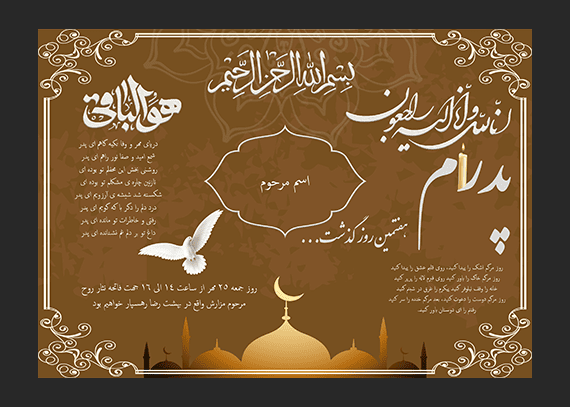 بسم الله الرحمن الرحیم
انا لله و انا الیه راجعون
هو الباقی
پدرام
دریای مهر و وفا تکیه گاهم ای پدر
شمع امید و صفا نور راهم ای پدر
روشنی بخش این محفلم تو بوده ای
نازنین چاره ی مشکلم تو بوده ای
شکسته شد شیشه ی آرزویم ای پدر
درد دلم را دگر با که گویم ای پدر
رفتی و خاطرات تو مانده ای پدر
داغ تو بر دلم غم نشانده ای پدر
اسم مرحوم
هفتمین روز گذشت...
روز مرگم اشک را پیدا کنید، روی قلبم عشق را پیدا کنید
روز مرگم خاک را باور کنید، روی قبرم لاله را پرپر کنید
خانه را وقف نیلوفر کنید، پیکرم را غرق در شبنم کنید
روز مرگم دوست را دعوت کنید، بعد مرگم خنده را سر کنید
رفتنم را ای دوستان باور کنید.
روز جمعه ۲۵ مهر از ساعت ۱۴ الی ۱۶ جهت فاتحه نثار روح
مرحوم مزارش واقع در بهشت رضا رهسپار خواهیم بود